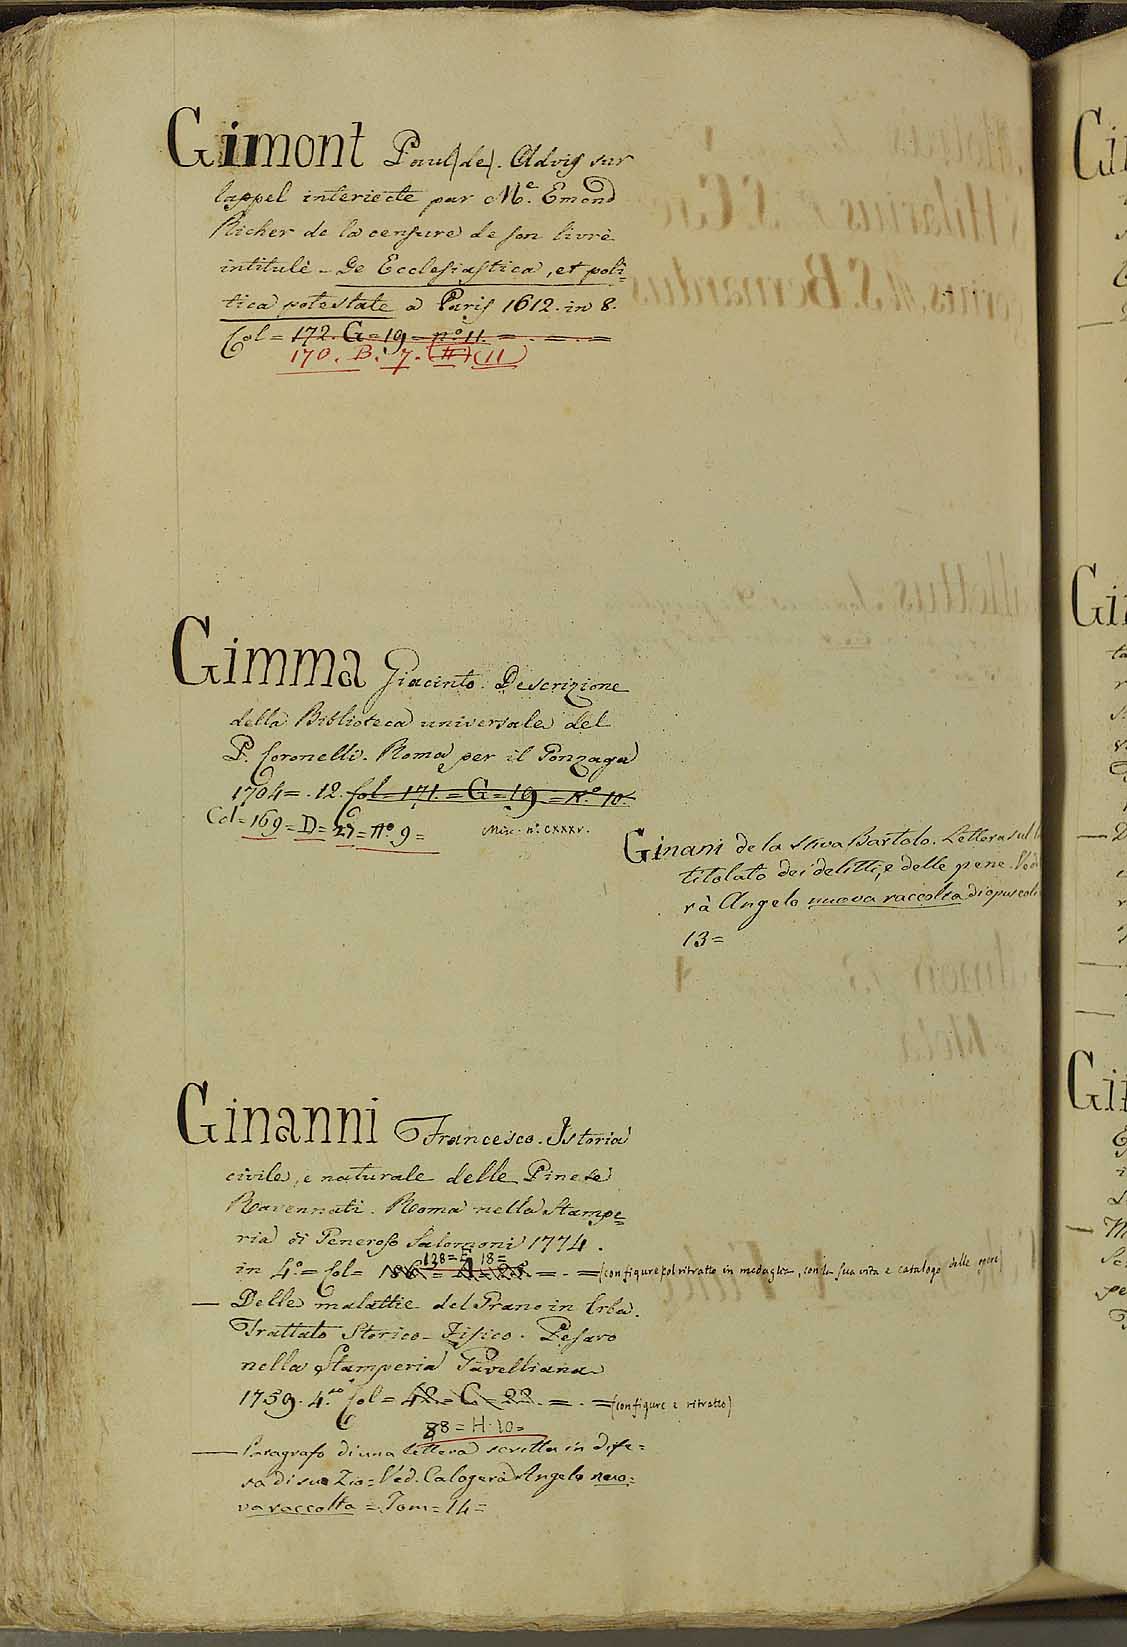 Gimont Paul (de). Advis sur
lappel interiecte par Me. Emond
Richer de la censure de son livrè
intitulè - De Ecclesiastica, et poli=
tica potestate a Paris 1612. in 8.
Col = 172. G = 19 = no. 11. = = . =
170. B. 7. (11)
Gimma Giacinto. Descrizione
della Biblioteca universale del
P. Coronelli. Roma per il Gonzaga
1704 = . 12. Col = 171. = G = 19 = No. 10.
Col = 169 = D = 27 = no. 9 =
Misc. no. CXXXV.
Ginani de la Stiva Bartolo. Lettera sul
titolato dei delitti, e delle pene. Ved
rà Angelo nuova raccolta di opuscoli
13 =
Ginanni Francesco. Istoria
civile, e naturale delle Pinete
Ravennati. Roma nella Stampe=
ria di Generoso Salomoni 1774.
128 = E 18 =
in 4o. = Col = = . = (con figure, col ritratto in medaglia, con la sua vita e catalogo delle opere)
— Delle malattie del Grano in Erba.
Trattato Storico-Fisico. Pesaro
nella Stamperia Gavelliana
1759. 4.to Col = 42 = C = 22. = . = (con figure e ritratto)
88 = H. 10 =
— Paragrafo di una lettera scritta in dife=
sa di suo Zio = Ved. Calogerà Angelo nuo=
va raccolta = Tom = 14 =